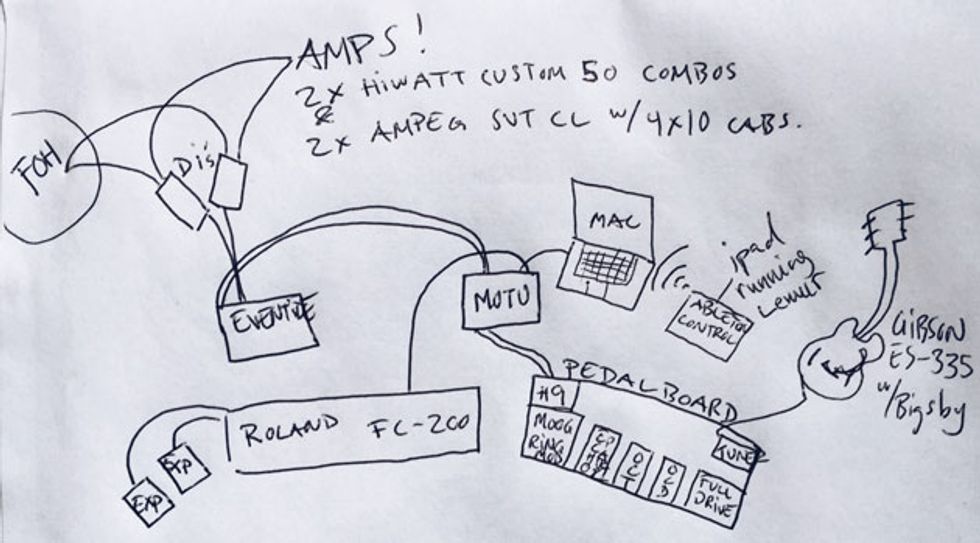 AMPS!
2x HIWATT CUSTOM 50 COMBOS
&
2x AMPEG SVT CL w/ 4x10 CABS.
FOH
Di's
MAC
ipad
running
Lemur
ABLETON
CONTROL
MOTU
EVENTIDE
GIBSON
ES-335
w/Bigsby
PEDALBOARD
H9
MOOG
RING
MOD
OCT
OCD
FULL
DRIVE
TUNE
ROLAND FC-200
EXP
EXP